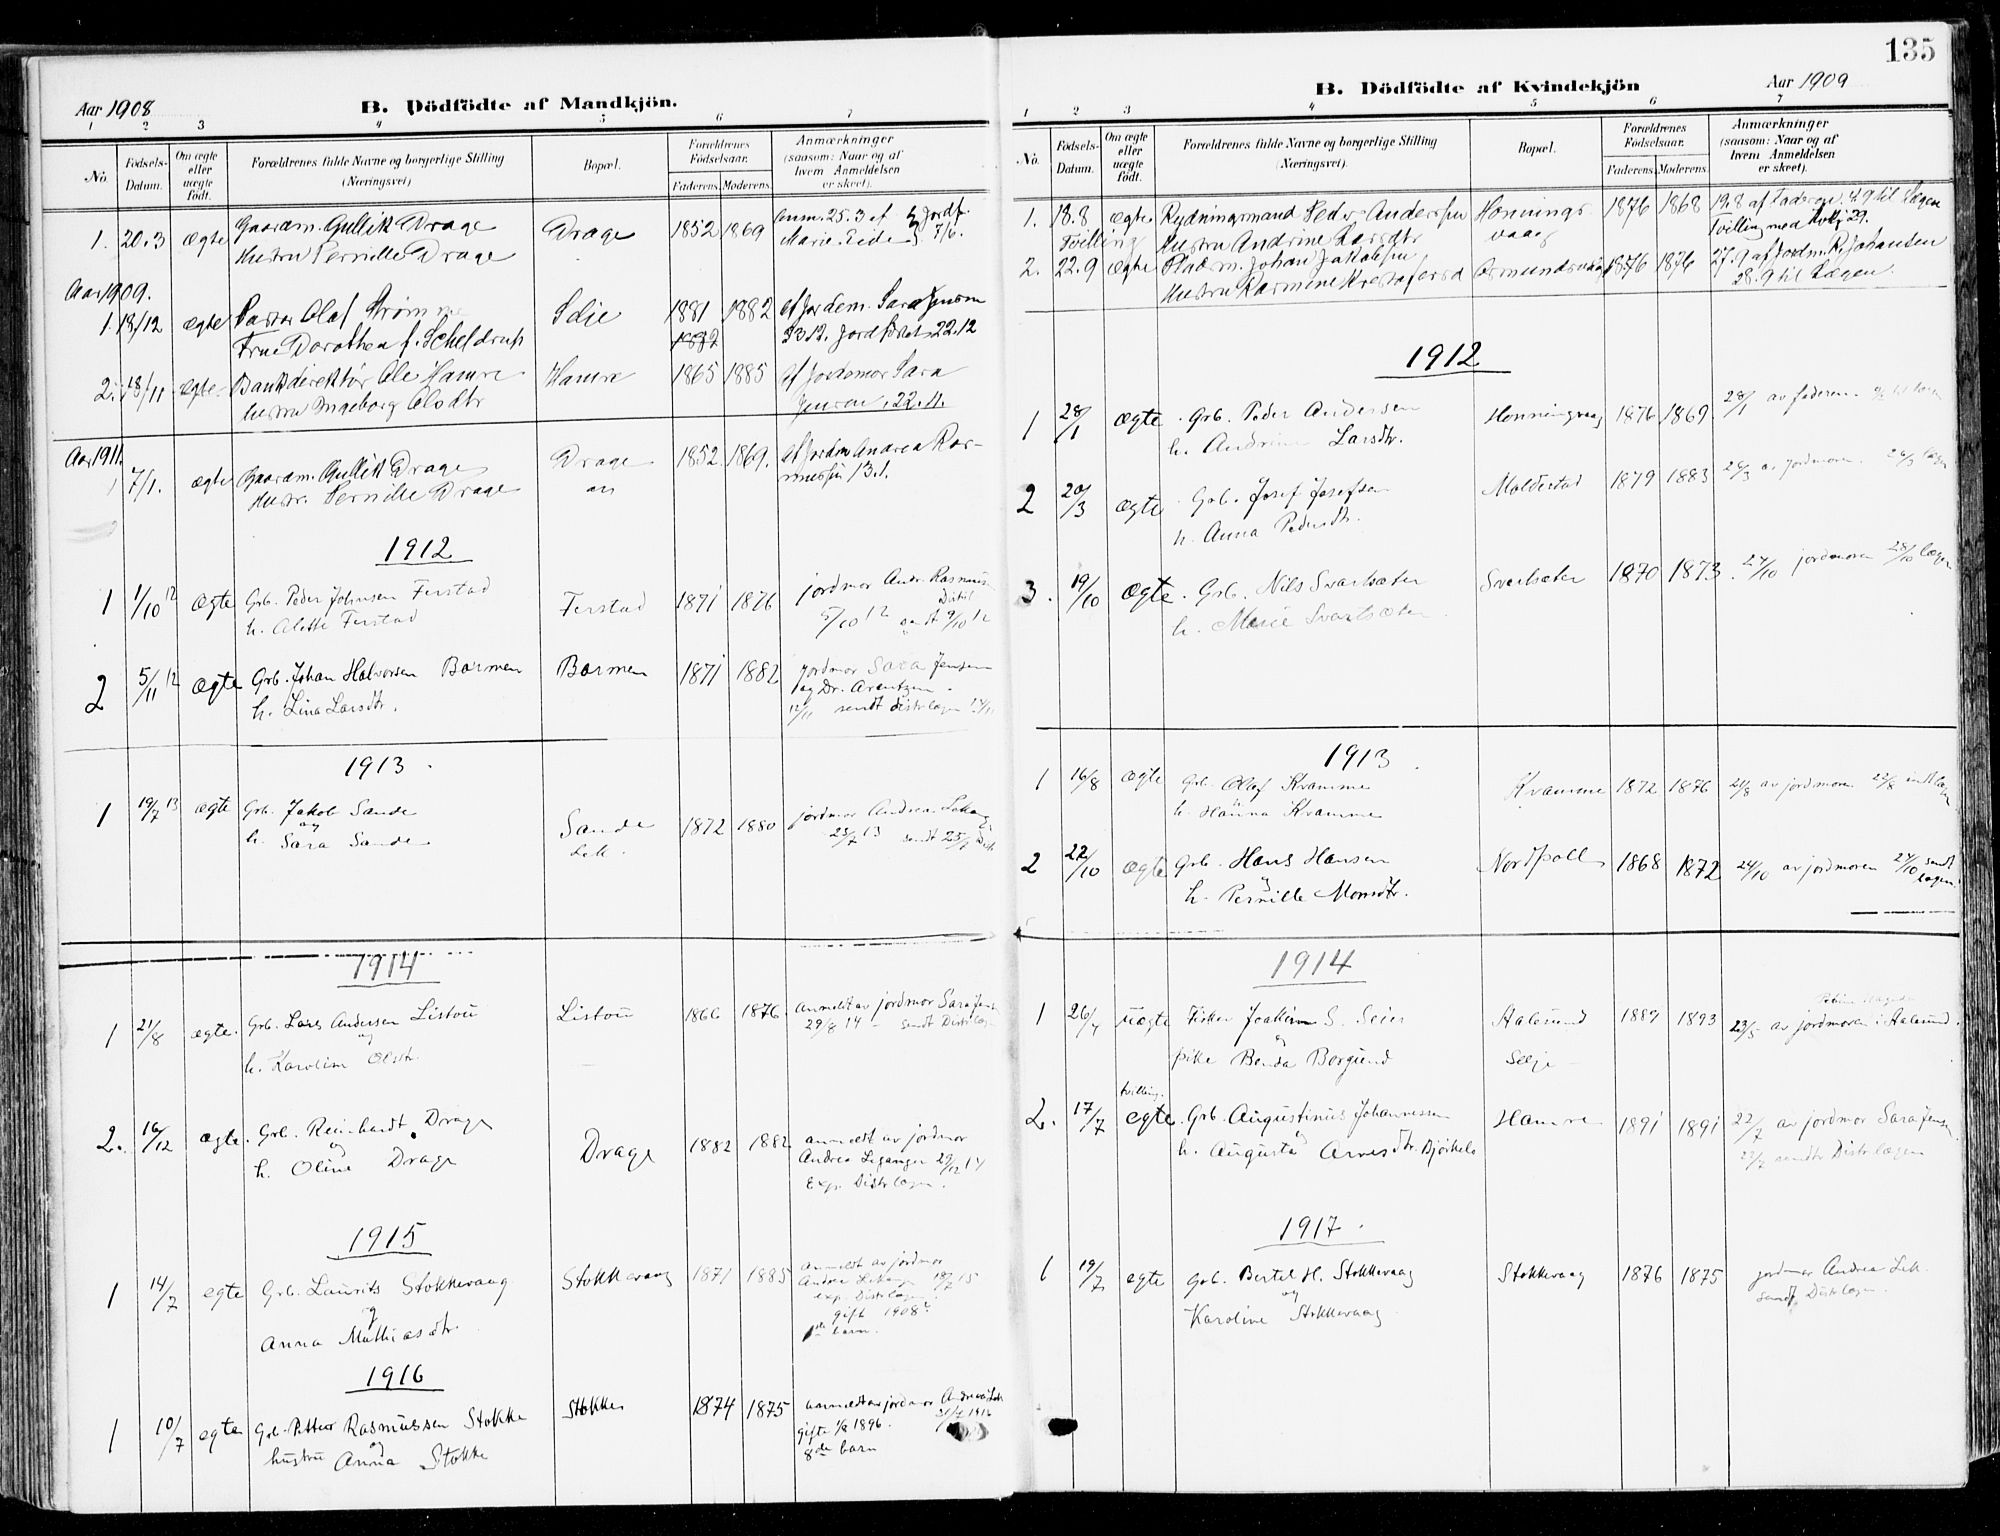 Aar 1908
B. Dödfödte af Mandkjön.
1 2 3 4 5 6 7
No.
Födsels-Datum.
Om ægte eller uægte födt.
Forældrenes fulde Navne og borgerlige Stilling (Næringsvei).
Bopæl.
Forældrenes Födselsaar.
Faderens. Moderens.
Anmærkninger (saasom: Naar og af hvem Anmeldelsen er skeet).
1. 20.3 ægte Gaardm. Gullik Drage Drage 1852 1869 anm. 25.3 af
Hustru Pernille Drage Marie Eide 7/6.
Aar 1909.
1. 18/12 ægte Pastor Olaf Strømme Selje 1881 1882 af Jordem. Sara Jensen
Frue Dorothea f. Scheldrup 1882 22.12
2. 18/11 ægte Bankdirektør Ole Hamre Hamre 1865 1885 af Jordemor Sara
hustru Ingeborg Olsdtr Jensen 22.11.
Aar 1911.
1 7/1. ægte Gaardm. Gullik Drage Drage 1852 1869. af Jordm Andrea Ras-
Hustr. Pernille Drage mussen 13.1.
1912
1 1/10 12 ægte Grb. Peder Johnsen Ferstad Ferstad 1871 1876 jordmor Andr. Rasmuss
h. Alette Ferstad 5/10 12 sendt 9/10 12
2 5/11 12 ægte Grb. Johan Halvorsen Barmen Barmen 1871 1882 jordmor Sara Jensen
h. Lina Larsdtr. og Dr. Arentzen.
12/11 sendt distr.lægen
1913
1 19/7 13 ægte Grb. Jakob Sande Sande 1872 1880 jordmor Andrea
og
h. Sara Sande 23/7 13 sendt 25/7
1914
1 21/8 ægte. Grb. Lars Andersen Listou Listou 1866 1876 anmeldt av jordmor Sara Jensen
og 29/8 14 - sendt Distr.lægen
h. Karoline Olsdtr.
2. 16/12 ægte. Grb. Reinhardt Drage Drage 1882 1882 anmeldt av jordmor
og Andrea Leganger 29/12 14
h. Oline Drage Exp. Distr.lægen.
1915
1 14/7 egte Grb. Laurits Stokkevaag Stokkevaag 1871 1885 anmeldt av jordmor
og exp. Distr.lægen
Anna Mathiasdtr. gift 1908
barn.
1916
1 10/7 egte Grb. Petter Rasmussen Stokke Stokke 1874 1875 anmeldt av jordmor Andrea Lek
og gifte 1/8 1896. 31/7 1916
hustru Anna Stokke 8de barn
135
B. Dödfödte af Kvindekjön
Aar 1909
1 2 3 4 5 6 7
No.
Födsels-Datum.
Om ægte eller uægte födt.
Forældrenes fulde Navne og borgerlige Stilling (Næringsvei).
Bopæl.
Forældrenes Födselsaar.
Faderens. Moderens.
Anmærkninger (saasom: Naar og af hvem Anmeldelsen er skeet).
1. 18.8 ægte Rydningsmand Peder Anderssen Honnings- 1876 1868 19.8 af Faderen. 4.9 til Lægen
Tvilling Hustru Andrine Larsdtr vaag Tvilling med 29.
2. 22.9 ægte Pladsm. Johan Jakobsen 1876 1876 27.9 af Jordm. R. Johansen
Hustru Karmine 28.9 til Lægen.
1912
1 28/1 ægte Grb. Peder Andersen Honningvaag 1876 1869 28/1 av faderen.
h. Andrine Larsdtr.
2 20/3 ægte Grb. Josef Josefsen Moldestad 1879 1883 26/3 av jordmoren. 26/3 lægen
h. Anna Pedersdtr.
3. 19/10 ægte Grb. Nils Svartsæter Svartsæter 1870 1873 27/10 jordmoren 28/10 lægen
h. Marie Svartsæter
1913
1 16/8 ægte Grb. Olaf Kvamme Kvamme 1872 1876 21/8 av jordmoren 22/8
h. Hanna Kvamme
2 22/10 ægte Grb. Hans Hansen Nordpoll 1868 1872 24/10 av jordmoren 24/10 sendt lægen
og
h. Pernille Monsdtr.
1914
1 26/4 uægte Fisker Joakim S. Seier Aalesund 1889 1893 23/5 av jordmoren i Aalesund.
og
pike Benda Borgund Selje
tvilling.
2. 17/7 egte Grb. Augustinus Johannessen Hamre 1891 1891 22/7 av jordmor Sara Jensen
h. Augusta Arnesdtr. Bjørkelo 23/7 sendt Distr.lægen
1917
1 19/7 egte Grb. Bertel H. Stokkevaag Stokkevaag 1876 1875 jordmor Andrea Lek.
og sendt Distr.lægen.
Karoline Stokkevaag